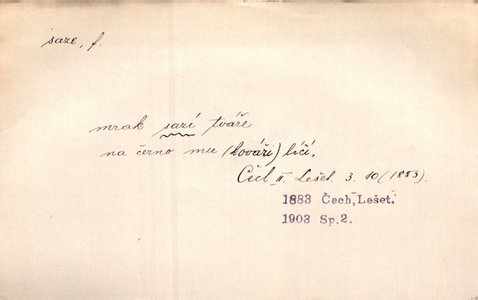 saze, f.
mrak sazí tváře
na černo mu (kováři) líčí,
Čech II. Lešet. 3. 10 (1883).
1883 Čech, Lešet.
1903 Sp. 2.